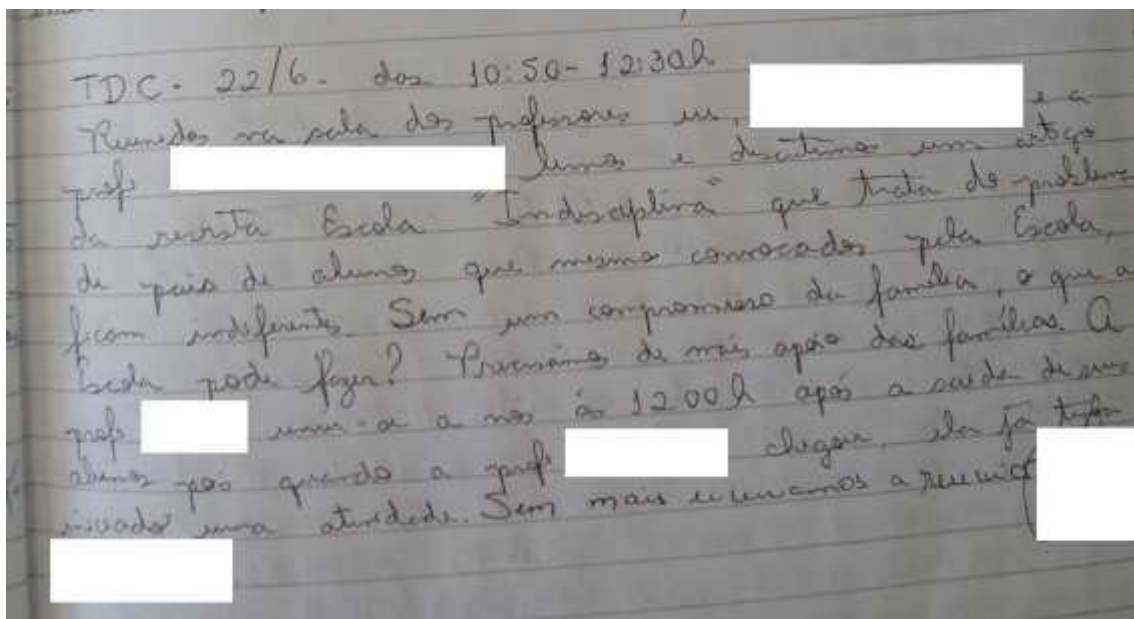 TDC. 22/6. das 10:50-12:30h
Reunidos na sala dos professores eu, e a
prof lemos e discutimos um artigo
da revista Escola "Indisciplina" que trata do problema
de pais de alunos que mesmo convocados pela Escola,
ficam indiferentes. Sem um compromisso da família, o que a
Escola pode fazer? Precisamos de mais apoio das famílias. A
prof. uniu-se a nós às 12:00h após a saída de seus
alunos pois quando a profª chegou, ela já tinha
iniciado uma atividade. Sem mais encerramos a reunião (